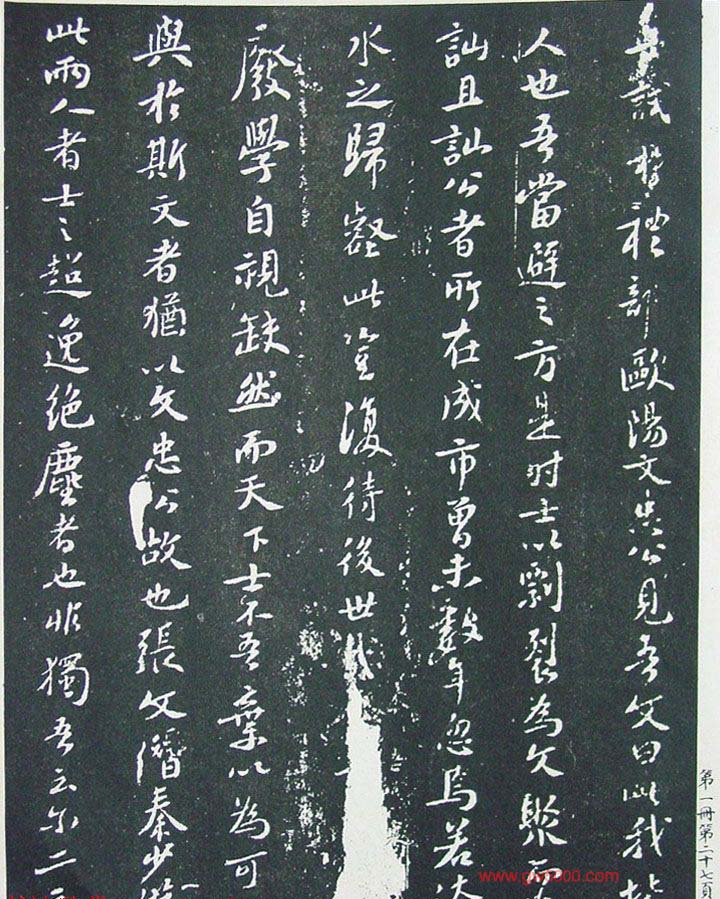 試於禮部歐陽文忠公見吾文曰此我
人也吾當避之方是时士以剽裂為文聚而
訕且訕公者所在成市曾未數年忽焉若
水之歸壑此豈復待後世哉
廢學自視缺然而天下士不吾棄以為可
與於斯文者猶以文忠公故也張文潛秦少游
此兩人者士之超逸絕塵者也非獨吾云尔二
第一冊第二十七頁